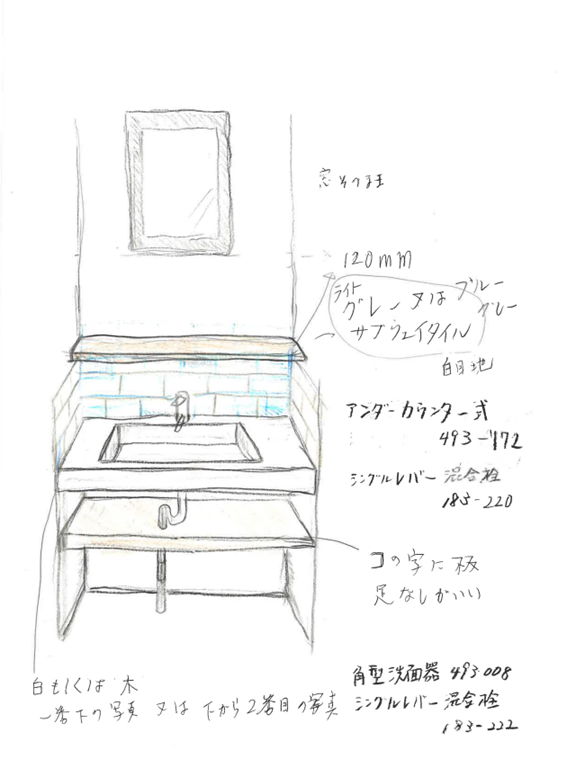 窓そのまま
120mm
ライト
グレー又はブルーグレー
サブウェイタイル
白目地
アンダーカウンター式
493-172
シングルレバー 混合栓
183-220
コの字に板
足なしがいい
白もしくは木
一番下の写真 又は 下から2番目の写真
角型洗面器 493-008
シングルレバー 混合栓
183-222